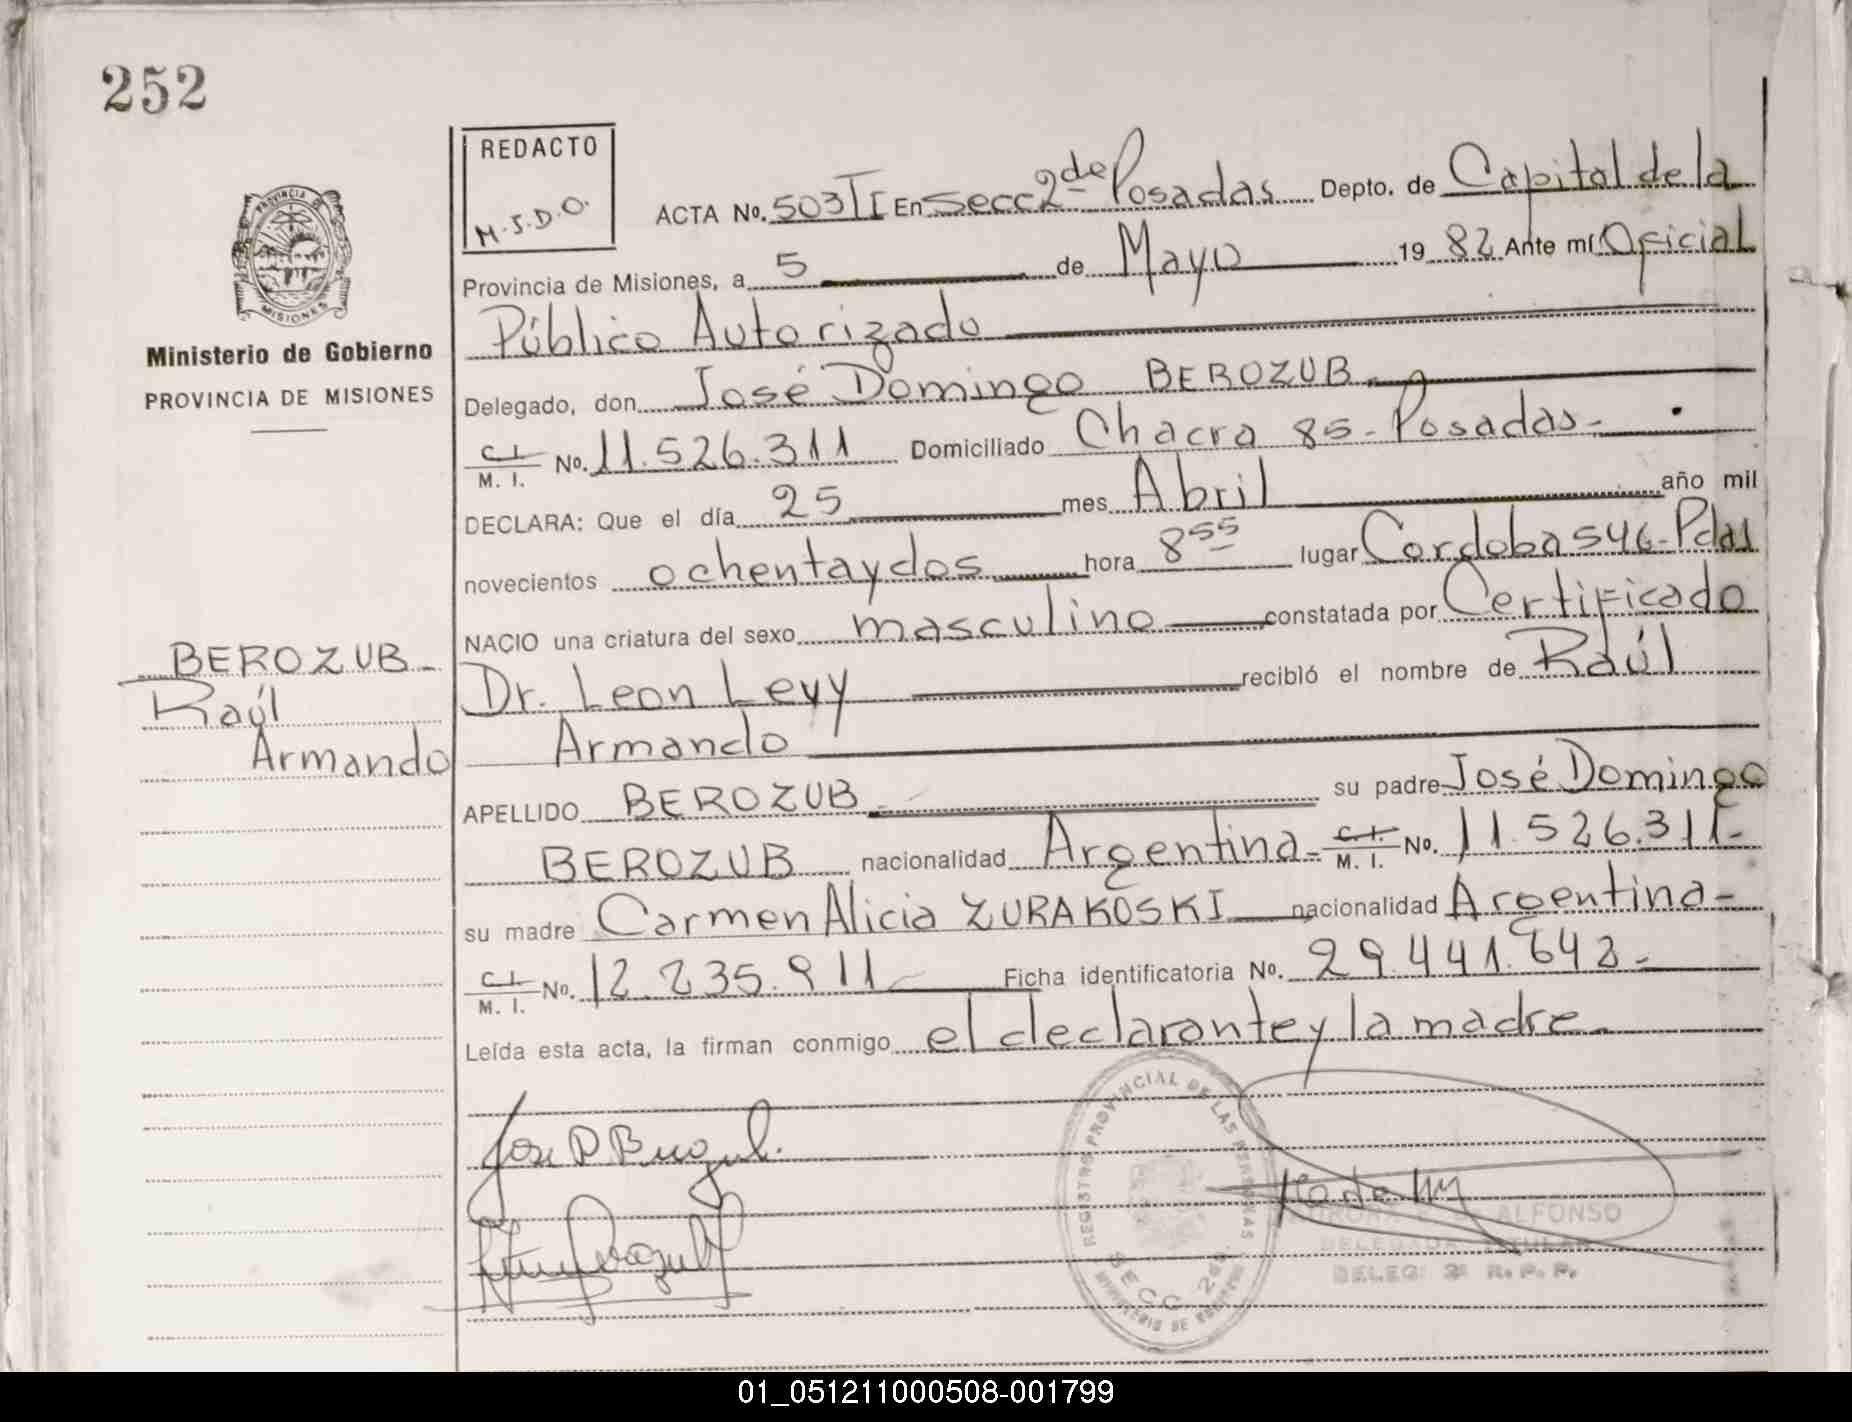 252
REDACTO
M.J.D.O.
PROVINCIA DE
MISIONES
Ministerio de Gobierno
PROVINCIA DE MISIONES
BEROZUB-
Raúl
Armando
ACTA No. 503 TI En Secc 2da de Posadas Depto. de Capital de la
Provincia de Misiones, a 5 de Mayo 1982 Ante mí Oficial
Público Autorizado
Delegado, don José Domingo BEROZUB.
C. I. M. I. No. 11.526.311 Domiciliado Chacra 85- Posadas-
DECLARA: Que el día 25 mes Abril año mil
novecientos ochentaydos hora 8 55 lugar Cordoba 546-Pdas
NACIO una criatura del sexo masculino constatada por Certificado
Dr. Leon Levy recibió el nombre de Raúl
Armando
APELLIDO BEROZUB su padre José Domingo
BEROZUB nacionalidad Argentina- C. I. M. I. No. 11.526.311-
su madre Carmen Alicia ZURAKOSKI nacionalidad Argentina-
C. I. M. I. No. 12.235.911 Ficha identificatoria No. 29.441.642-
Leída esta acta, la firman conmigo el declarante y la madre-
REGISTRO PROVINCIAL DE LAS PERSONAS
SECC 2da.
MINISTERIO DE GOBIERNO
ALFONSO
DELEGADA TITULAR
DELEG. 2ª R. P. P.
01_051211000508-001799